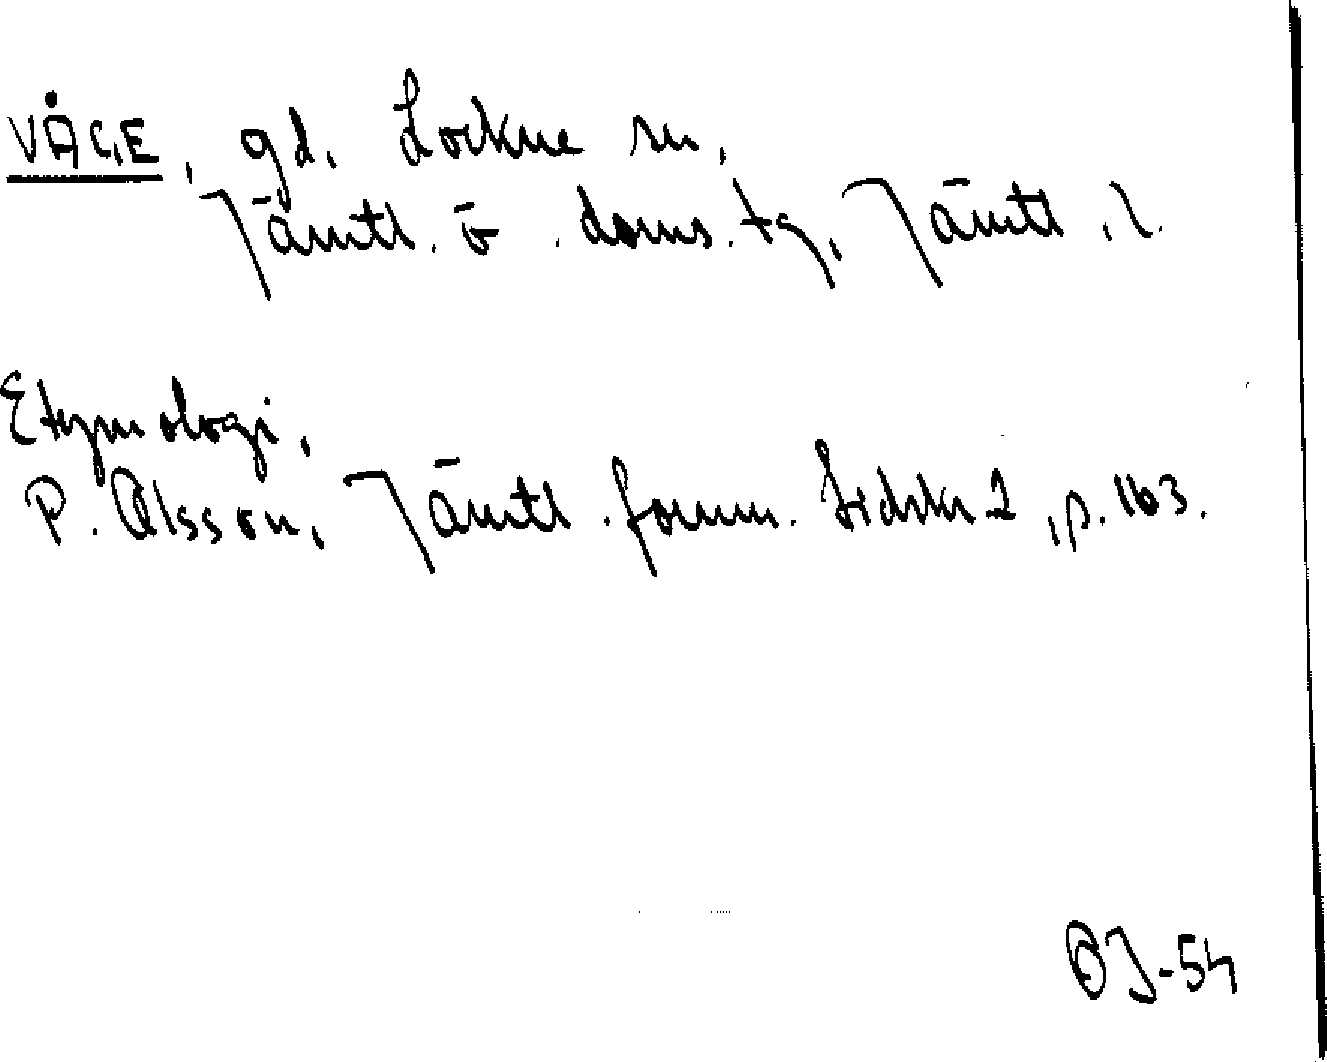 VÅGE, gd. Lockne sn,
Jämtl. ö. doms. tg, Jämtl. l.
Etymologi,
P. Olsson, Jämtl. fornm. tidskr. 2, p. 163.
OJ-54